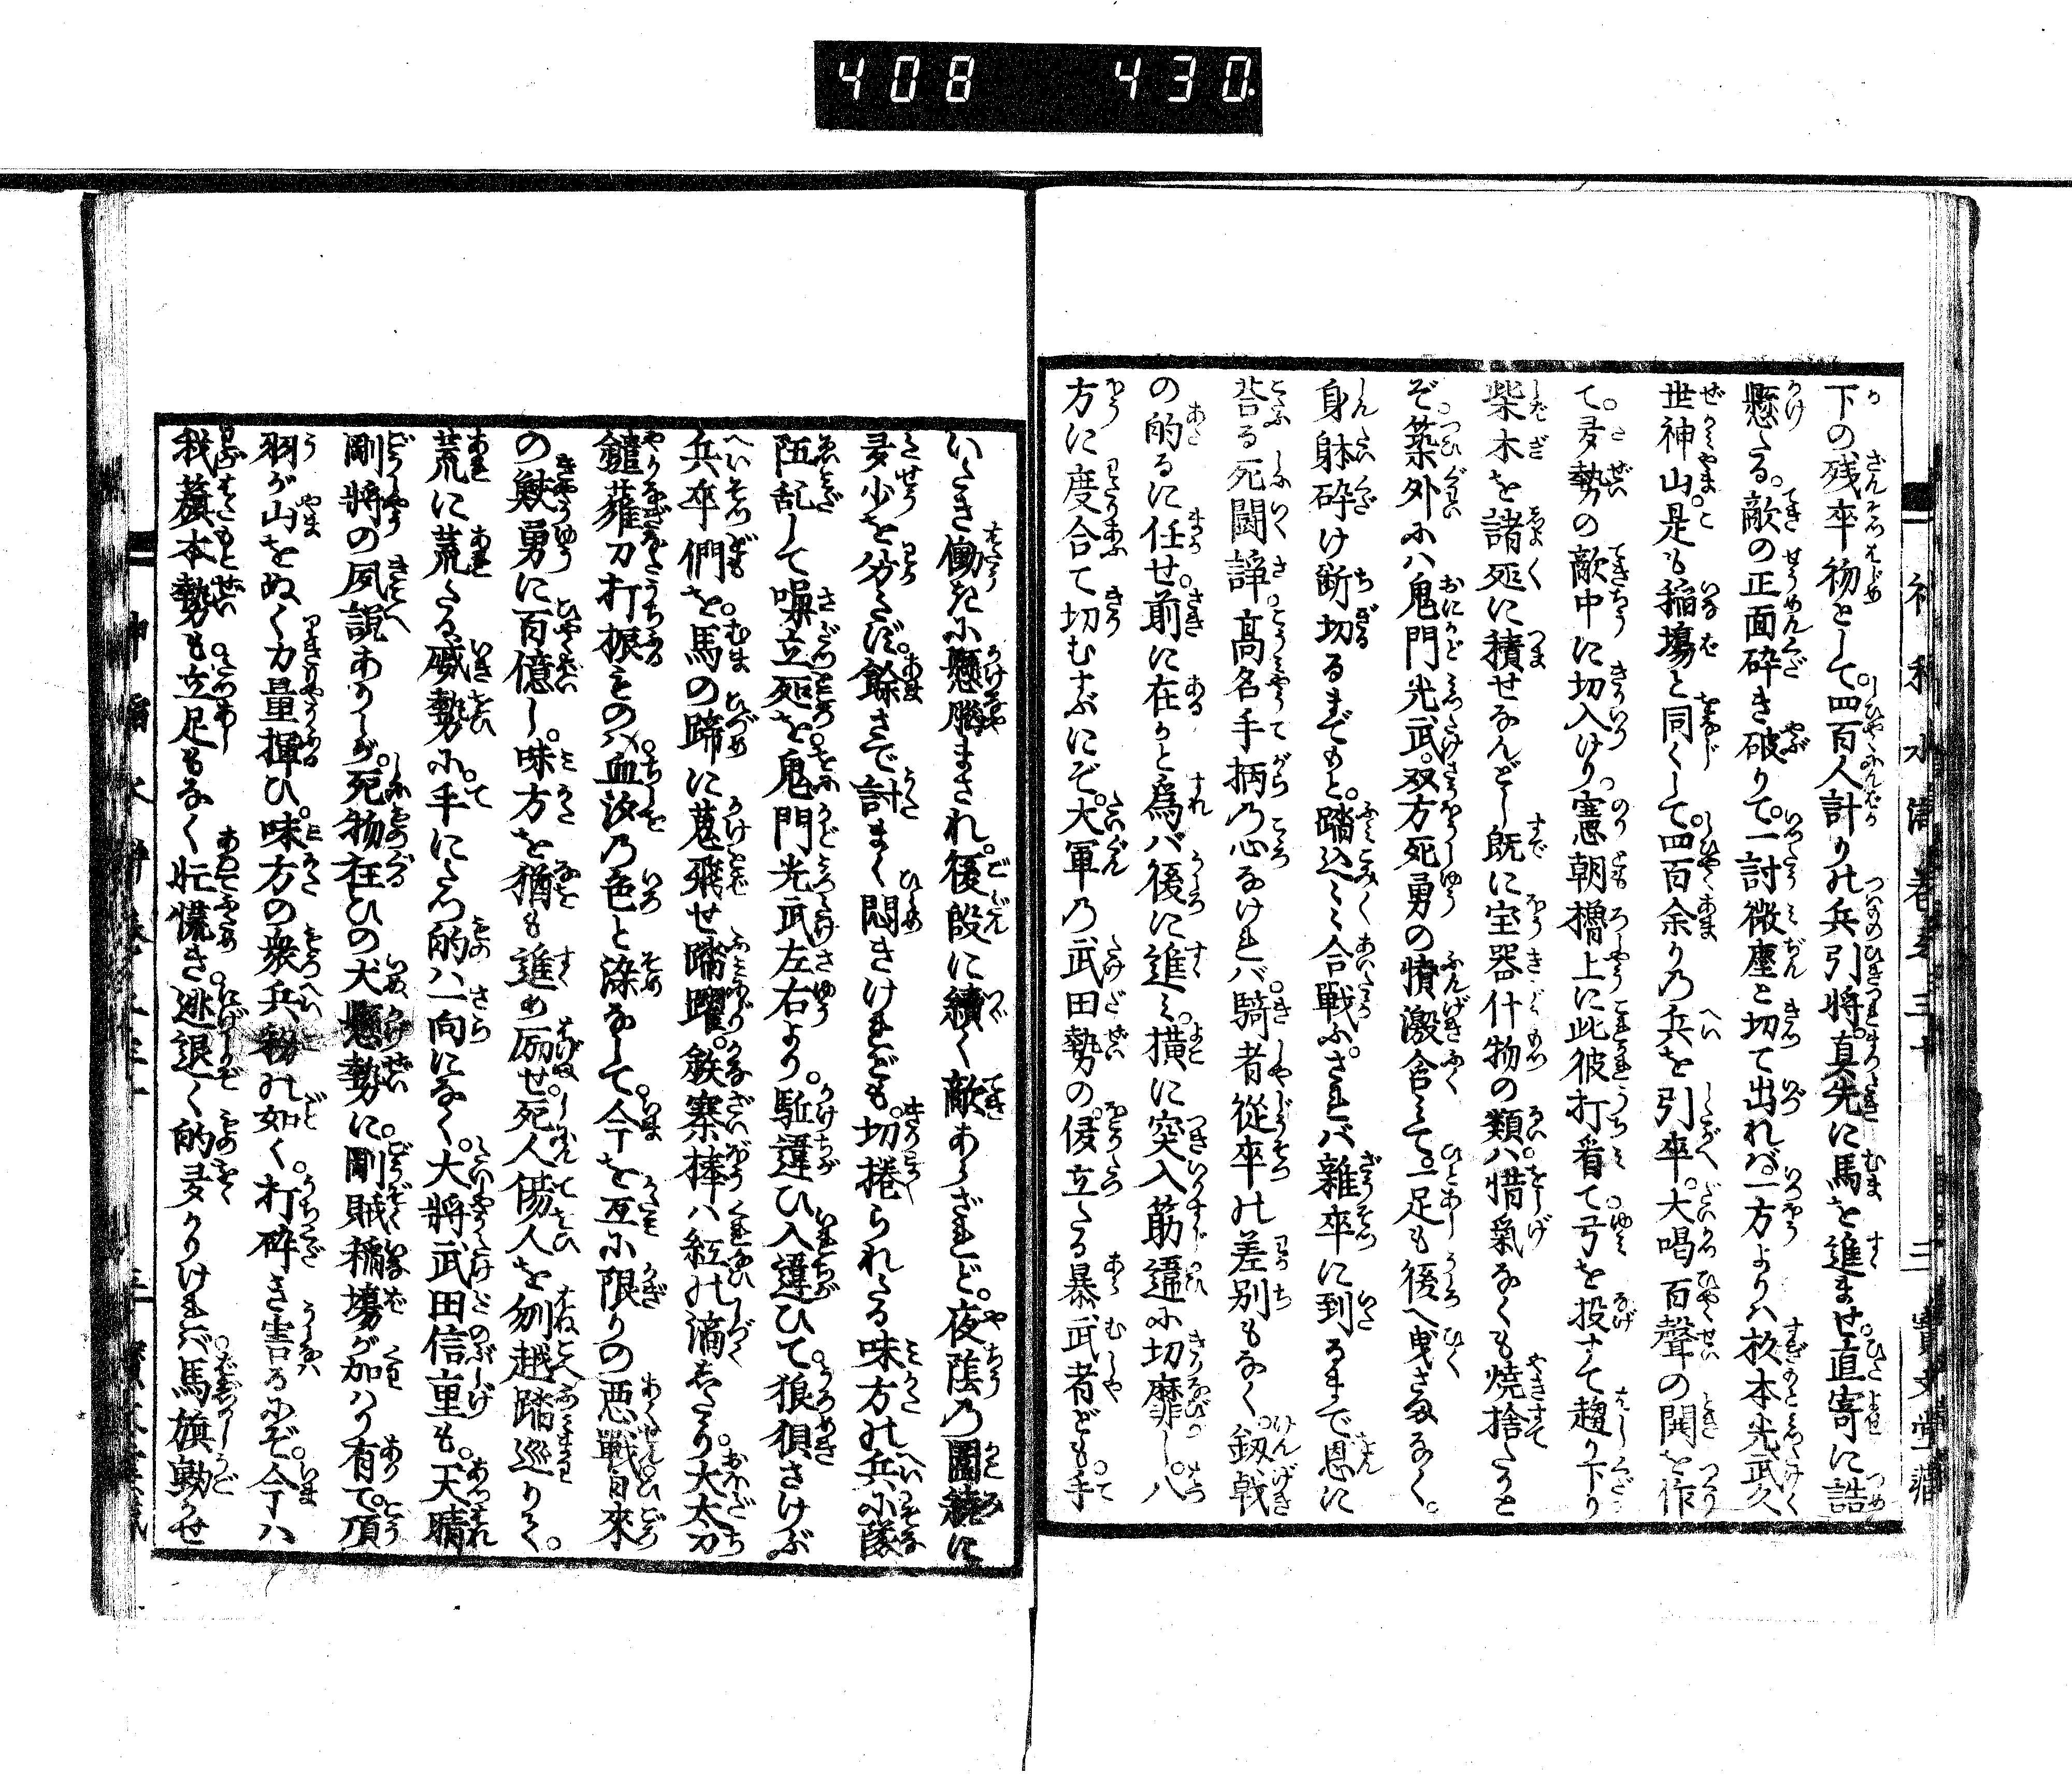 408 430.
下の残卒初として四百人計りの兵引将。真先に馬を進ませ。直寄に詰
懸たる。敵の正面砕き破りて。一討微塵と切て出れば一方よりハ杉本光武久
世神山。是も稲塲と同くして。四百余りの兵を引卒。大喝百聲の鬨を作
て。多勢の敵中に切入けり。憲朝櫓上に此彼打看て弓を投すて趨り下り
柴木を諸処に積せなんどし既に宝器什物の類ハ惜氣なくも焼捨たりと
ぞ。築外にハ鬼門光武。双方死勇の憤激含みて。一足も後へ曳さなく。
身躰砕け断切るまでもと。踏込々々合戰ふ。されバ雜卒に到るまで恩に
荅る死闘諍。高名手柄の心なけれバ。騎者從卒の差別もなく。劔戟
の的るに任せ。前に在かと爲バ後に進ミ。横に突入筋違に切靡し。八
方に度合て切むすぶにぞ。大軍の武田勢の。僾立たる暴武者ども手
いたき働きに懸惱まされ。後段に續く敵あらざれど。夜陰の圍繞に
多少を分たず。餘きで計まく悶きけれども。切捲られたる味方の兵に隊
伍乱して噪立処を。鬼門光武左右より。駈違ひ入違ひて。狼狽さけぶ
兵卒們を。馬の蹄に蒐飛せ踊躍。鉄寨捧ハ紅の滴したり。大太刀
鑓薙刀打振ものハ。血汐の色と染なして。今を互に限りの悪戰日來
の鮍勇に百億し。味方を猶も進め励せ。死人傷人を刎越踏巡りて。
荒に荒たる威勢に。手にたつ的ハ一向になく。大將武田信重も。天晴
剛將の夙説ありしが。死物在ひの犬懸勢に。剛賊稲塲が加ハり有て。項
羽が山をぬく力量揮ひ。味方の衆兵蒭の如く。打碎き害るにぞ。今ハ
我籏本勢も立足もなく忙慌き逃退く的多かりけれバ。馬旗動かせ